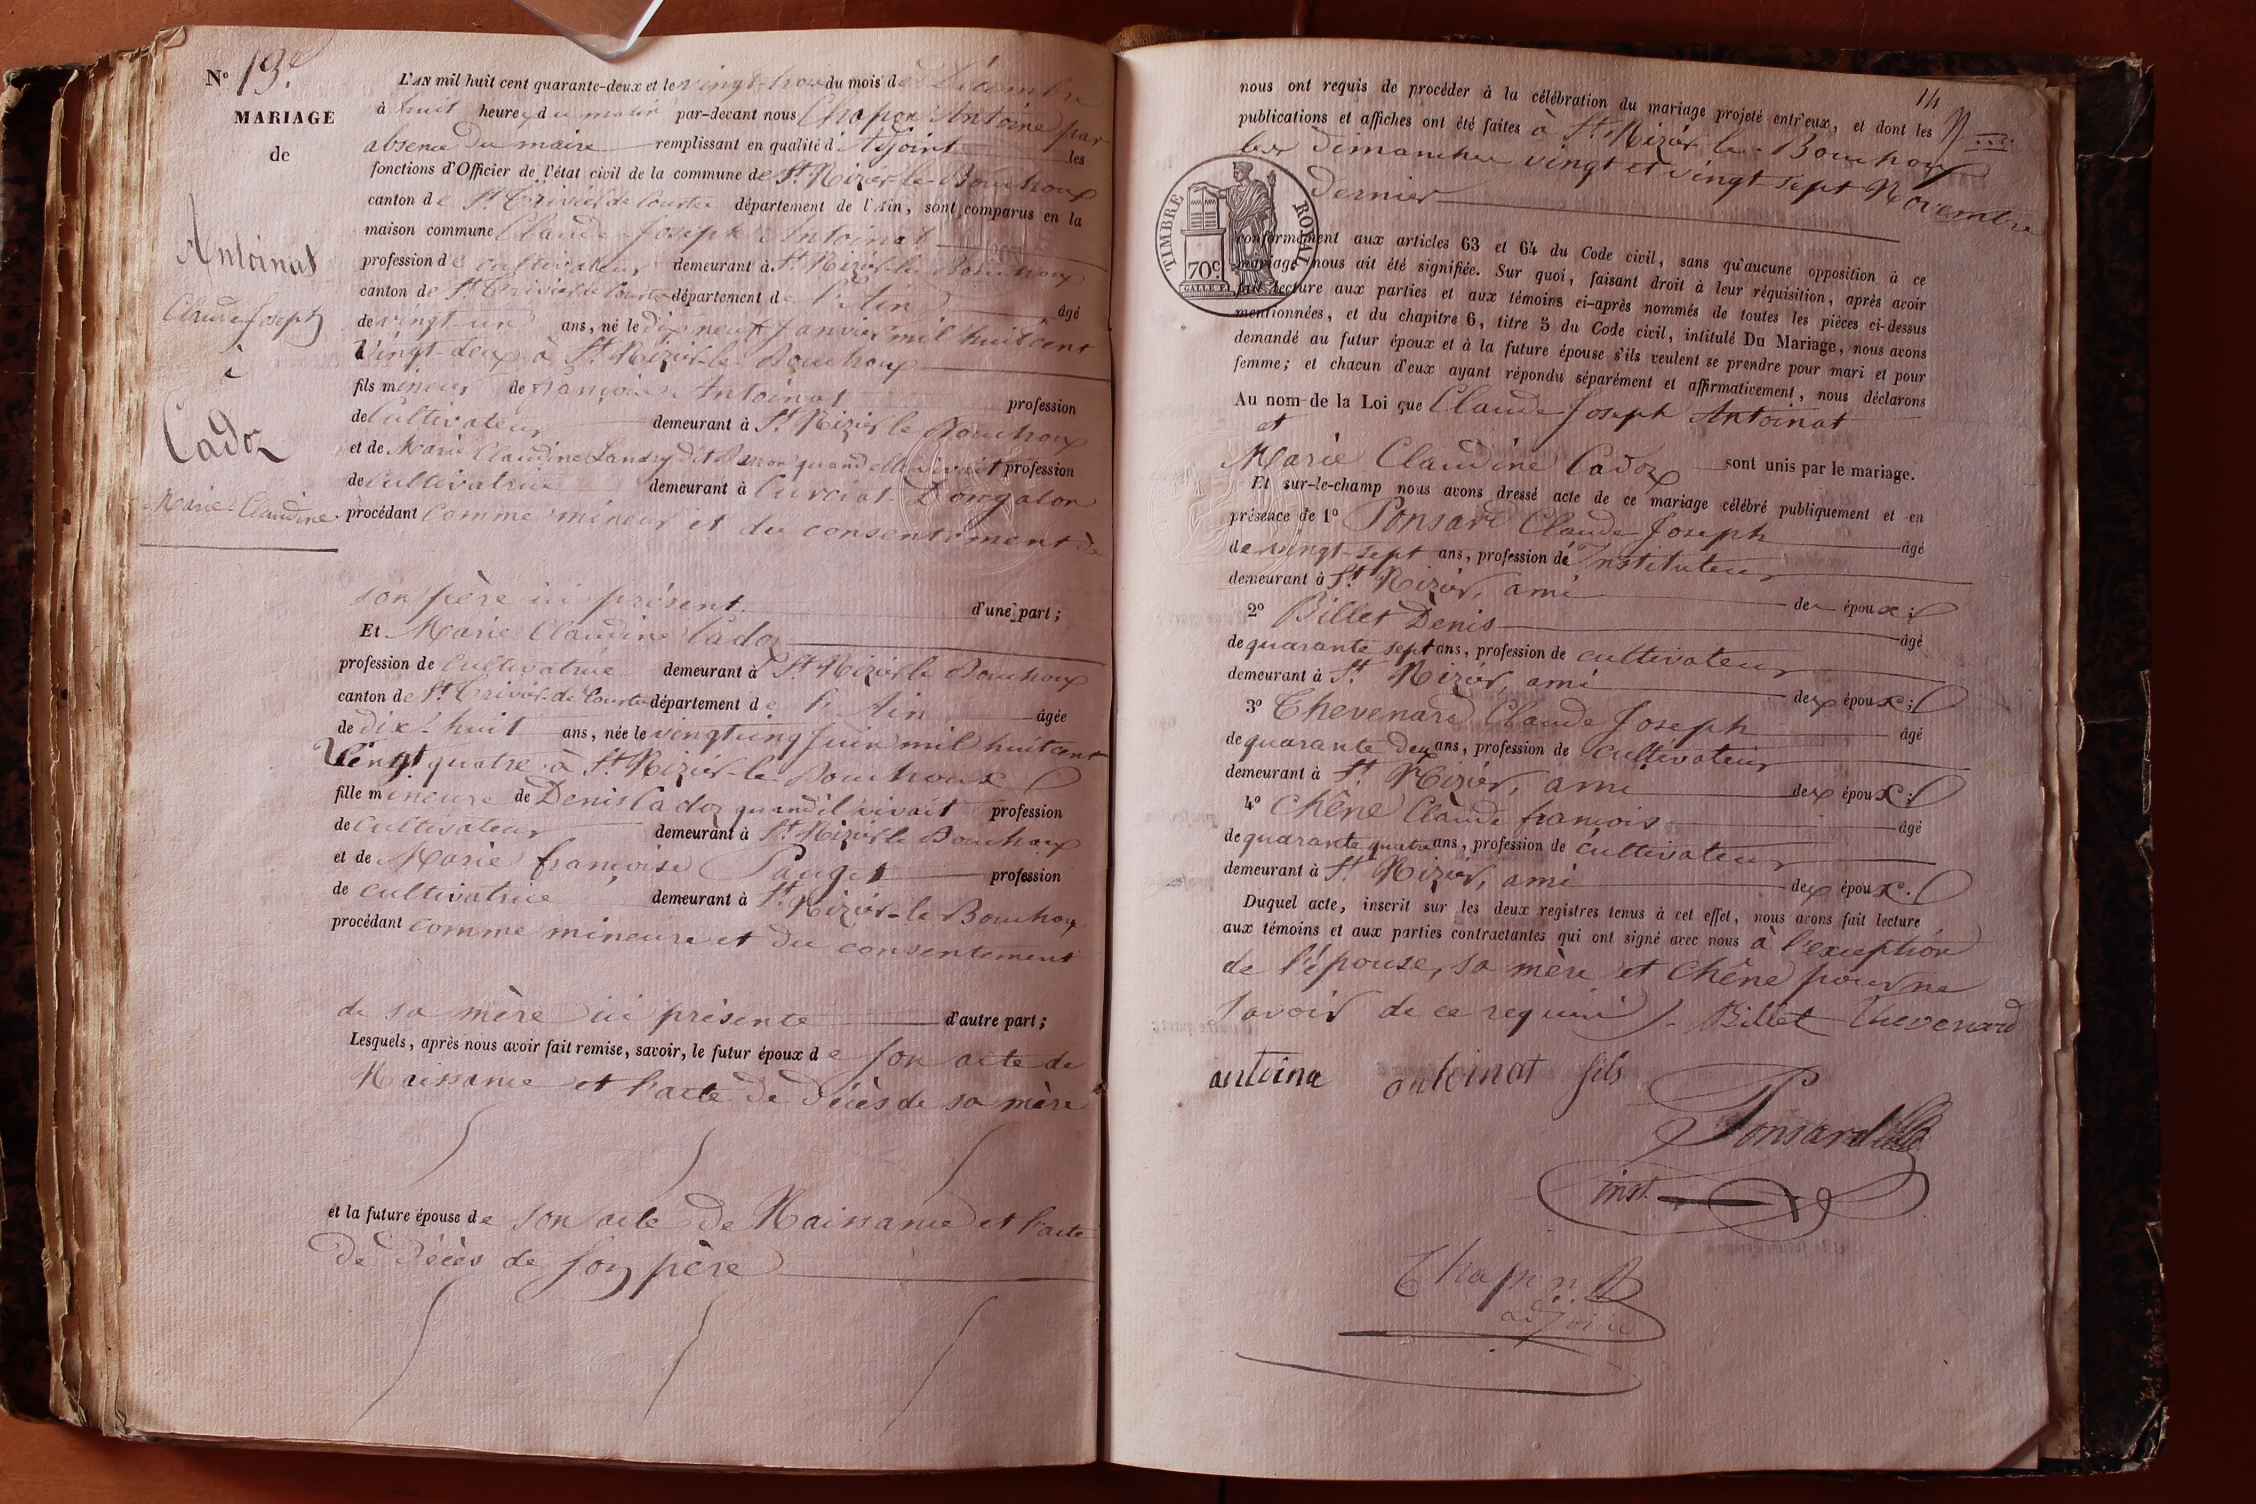 N° 13.
MARIAGE
de
Antoinat
Claude Joseph
à
Cadoz
Marie Claudine
L'AN mil huit cent quarante-deux et le vingt-trois du mois de Décembre
à huit heures du matin par-devant nous Chapon Antoine par
absence du maire remplissant en qualité d'Adjoint les
fonctions d'Officier de l'état civil de la commune de St Nizier-le-Bouchoux
canton de St Trivier de Courtes département de l'Ain, sont comparus en la
maison commune Claude Joseph Antoinat
profession de cultivateur demeurant à St Nizier-le-Bouchoux
canton de St Trivier de Courtes département de l'Ain âgé
de vingt-un ans, né le dix neuf Janvier mil huit cent
vingt-deux à St Nizier-le-Bouchoux
fils mineur de François Antoinat profession
de Cultivateur demeurant à St Nizier le Bouchoux
et de Marie Claudine Landry dit quand elle vivait profession
de Cultivatrice demeurant à Curciat-Dongalon
procédant comme mineur et du consentement de
son père ici présent d'une part;
Et Marie Claudine Cadoz
profession de Cultivatrice demeurant à St Nizier le Bouchoux
canton de St Trivier de Courtes département de l'Ain âgée
de dix-huit ans, née le vingt cinq Juin mil huit cent
vingt quatre à St Nizier-le-Bouchoux
fille mineure de Denis Cadoz quand il vivait profession
de Cultivateur demeurant à St Nizier le Bouchoux
et de Marie françoise Pauget profession
de cultivatrice demeurant à St Nizier-le-Bouchoux
procédant comme mineure et du consentement
de sa mère ici présente d'autre part;
Lesquels, après nous avoir fait remise, savoir, le futur époux de son acte de
Naissance et l'acte de décès de sa mère
et la future épouse de son acte de Naissance et l'acte
de décès de son père
14
nous ont requis de procéder à la célébration du mariage projeté entr'eux, et dont les
publications et affiches ont été faites à St Nizier le Bouchoux
les dimanches vingt et vingt sept Novembre
dernier
TIMBRE ROYAL
70c
conformément aux articles 63 et 64 du Code civil, sans qu'aucune opposition à ce
mariage nous ait été signifiée. Sur quoi, faisant droit à leur réquisition, après avoir
fait lecture aux parties et aux témoins ci-après nommés de toutes les pièces ci-dessus
mentionnées, et du chapitre 6, titre 5 du Code civil, intitulé Du Mariage, nous avons
demandé au futur époux et à la future épouse s'ils veulent se prendre pour mari et pour
femme; et chacun d'eux ayant répondu séparément et affirmativement, nous déclarons
Au nom de la Loi que Claude Joseph Antoinat
et
Marie Claudine Cadoz sont unis par le mariage.
Et sur-le-champ nous avons dressé acte de ce mariage célébré publiquement et en
présence de 1° Ponsard Claude Joseph âgé
de vingt-sept ans, profession de Instituteur
demeurant à St Nizier, ami des époux;
2° Billet Denis âgé
de quarante sept ans, profession de cultivateur
demeurant à St Nizier, ami des époux;
3° Thevenard Claude Joseph âgé
de quarante deux ans, profession de cultivateur
demeurant à St Nizier, ami des époux;
4° Chêne Claude françois âgé
de quarante quatre ans, profession de cultivateur
demeurant à St Nizier, ami des époux.
Duquel acte, inscrit sur les deux registres tenus à cet effet, nous avons fait lecture
aux témoins et aux parties contractantes qui ont signé avec nous à l'exception
de l'épouse, sa mère et Chêne pour ne
savoir de ce requis Billet Thevenard
antoina antoinat fils
Ponsard
inst.
Chapon
adjoint